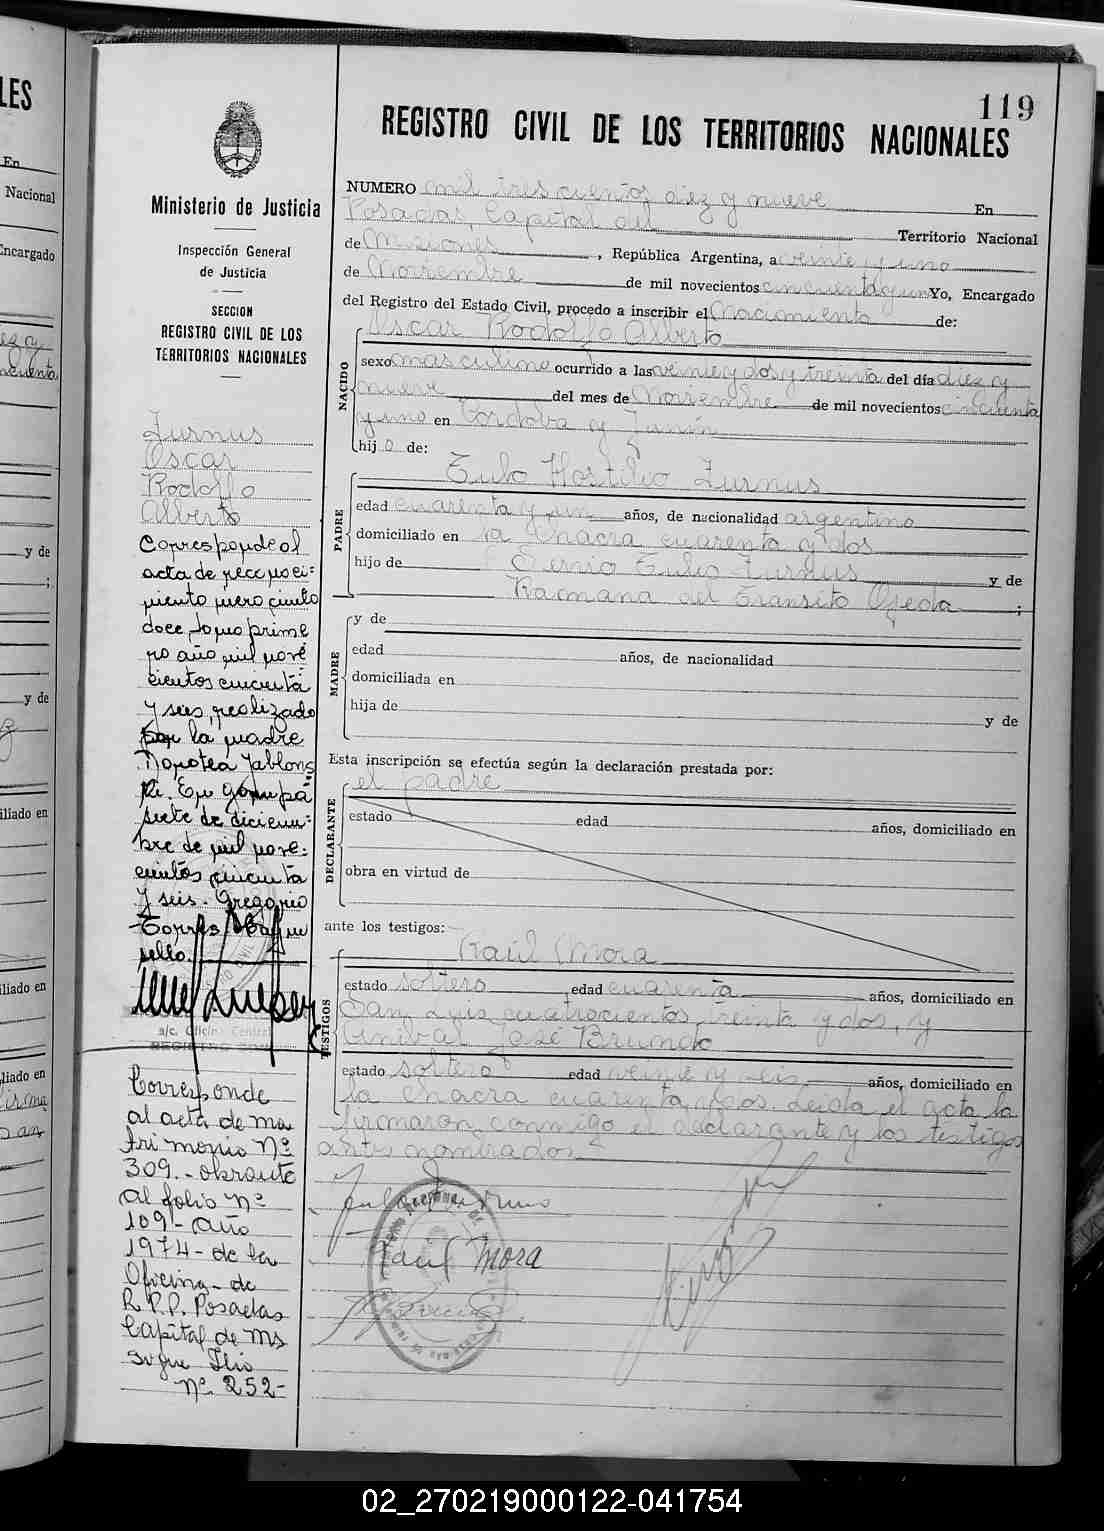 LES
En
Nacional
Encargado
y de
y de
iliado en
iliado en
liado en
119
REGISTRO CIVIL DE LOS TERRITORIOS NACIONALES
Ministerio de Justicia
Inspección General
de Justicia
SECCION
REGISTRO CIVIL DE LOS
TERRITORIOS NACIONALES
Zurnus
Oscar
Rodolfo
Alberto
Corresponde al
acta de reconoci=
miento número ciento
doce, tomo prime
ro año mil nove
cientos cincuenta
y seis, realizado
por la madre
Dorotea Jablons
ki. En Garupá
siete de diciem=
bre de mil nove=
cientos cincuenta
y seis. Gregorio
Torres
sello.
a/c. Oficina Central
REGISTRO CIVIL
Corresponde
al acta de ma
trimonio Nº
309.- obrante
al folio Nº
109 - año
1974 - de la
Oficina - de
R.P.P. Posadas
Capital de Ms
Nº 252-
NUMERO mil trescientos diez y nueve En
Posadas, Capital del Territorio Nacional
de Misiones, República Argentina, a veinte y uno
de Noviembre de mil novecientos cincuenta y uno Yo, Encargado
del Registro del Estado Civil, procedo a inscribir el Nacimiento de:
Oscar Rodolfo Alberto
NACIDO
sexo masculino ocurrido a las veinte y dos y treinta del día diez y
nueve del mes de Noviembre de mil novecientos cincuenta
y uno en Córdoba y Junín
hijo de:
Tulo Hostilio Zurnus
PADRE
edad cuarenta y un años, de nacionalidad argentino
domiciliado en la Chacra cuarenta y dos
hijo de Tulio Zurnus y de
Ramona del Tránsito Ojeda ;
MADRE
y de
edad años, de nacionalidad
domiciliada en
hija de y de
Esta inscripción se efectúa según la declaración prestada por:
el padre
DECLARANTE
estado edad años, domiciliado en
obra en virtud de
ante los testigos:
Raúl Mora
TESTIGOS
estado soltero edad cuarenta años, domiciliado en
San Luis cuatrocientos treinta y dos, y
Anibal José
estado soltero edad veinte y seis años, domiciliado en
la Chacra cuarenta y dos. Leída el acta la
firmaron conmigo el declarante y los testigos
antes nombrados.-
Raúl Mora
02_270219000122-041754